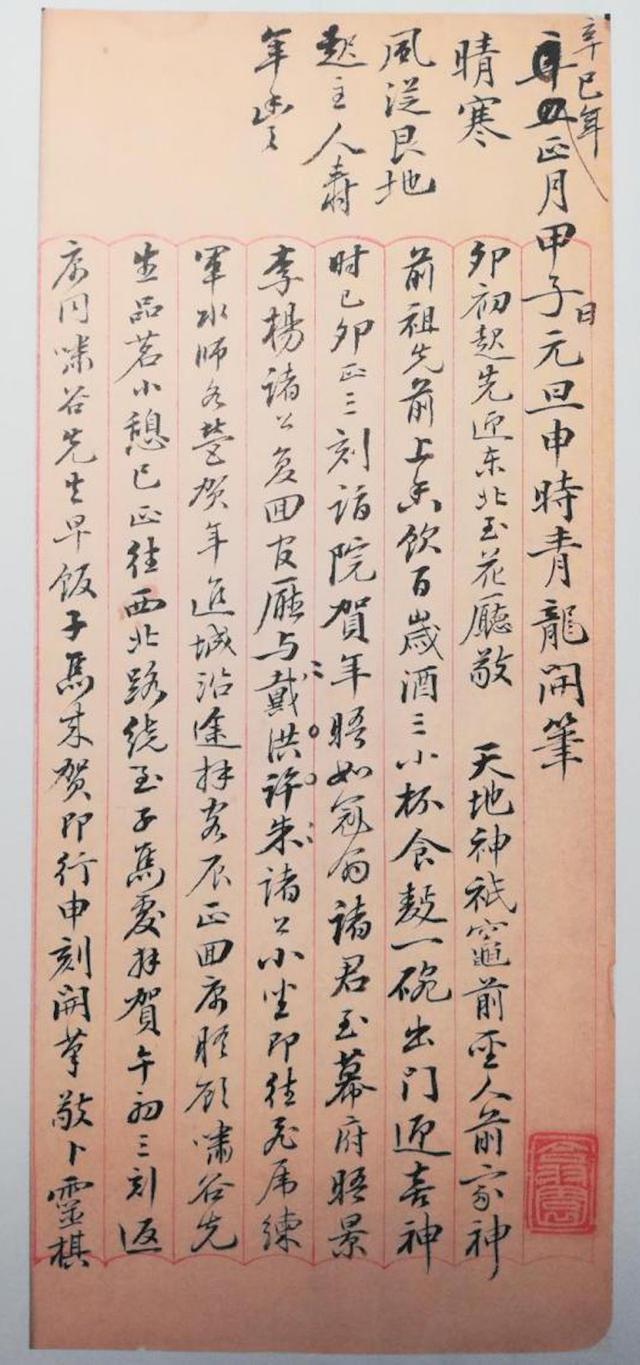 辛巳年
正月甲子日元旦申時青龍開筆
晴寒
風從艮地
起主人壽
年豐
卯初起先迎东北玉花廳敬 天地神祇竈前聖人前家神
前祖先前上香飲百歲酒三小杯食麨一碗出门迎喜神
时已卯正三刻詣院賀年晤如冠翁諸君至幕府晤景
李楊諸公复回官廳与戴洪許朱諸公小坐即往虎席練
軍水师各營贺年進城沿途拜客辰正回寓晤顧嘯谷先
生品茗小憩巳正往西北路绕至子馬處拜賀午初三刻返
寓同嘯谷先生早饭子馬来贺即行申刻開筆敬卜靈棋